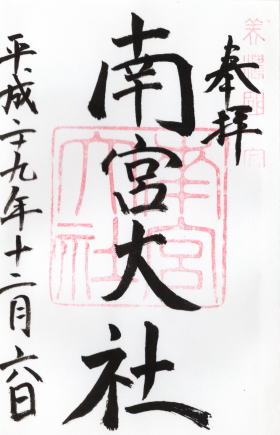 奉拝
南宮大社
平成二十九年十二月六日
南宮大社